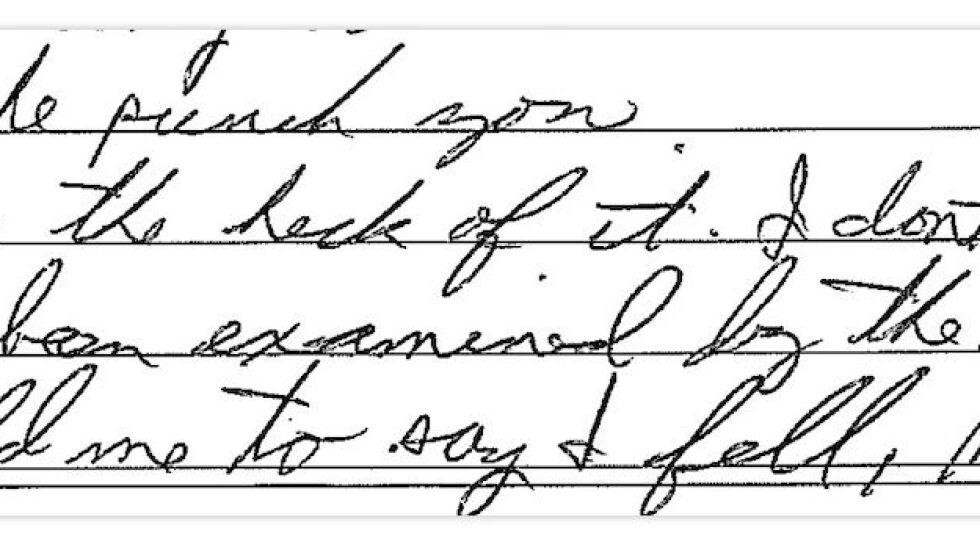 he punch you
the heck of it. I don't
been examined by the
me to say I fell,